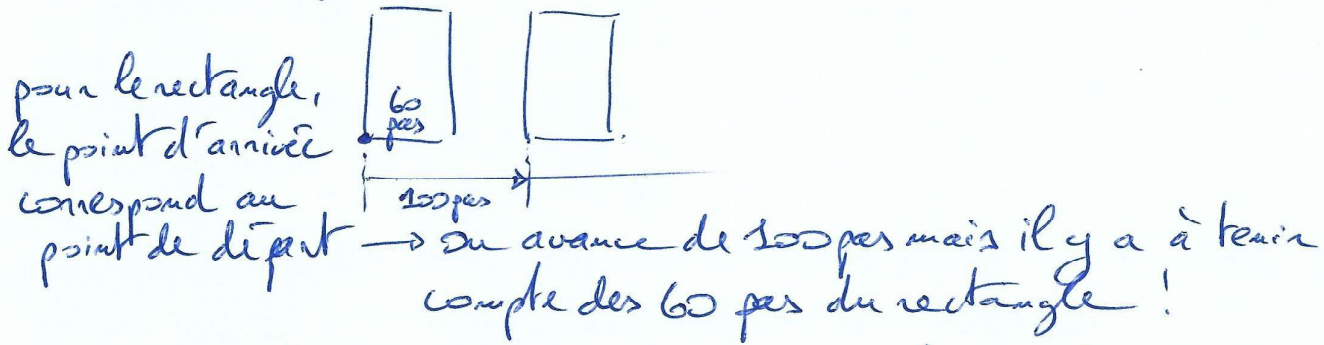 pour le rectangle,
le point d'arrivée
correspond au
point de départ → on avance de 100 pas mais il y a à tenir
compte des 60 pas du rectangle !
60
pas
100 pas